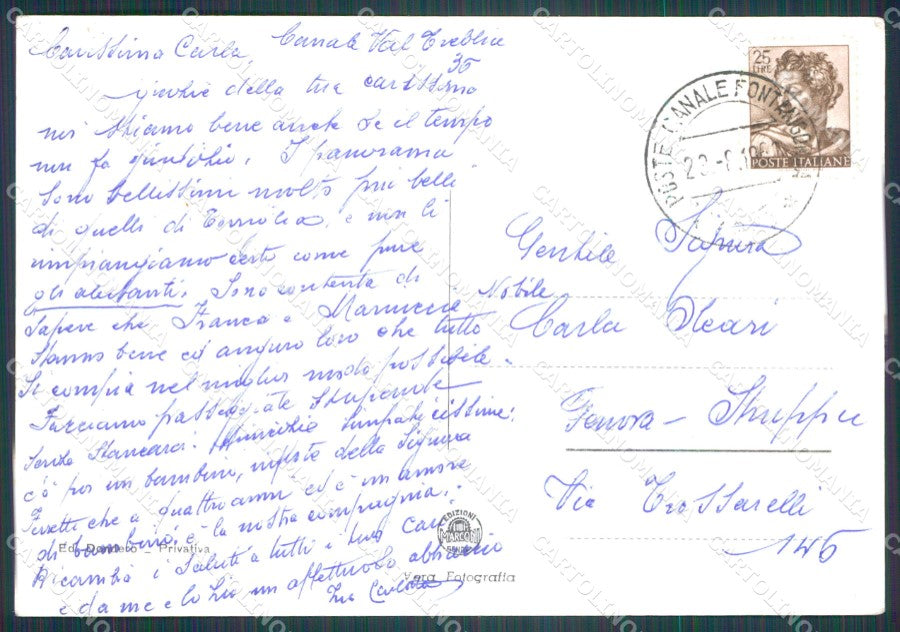 Carissima Carla, Canale Val Trebbia
35
grazie della tua carissima
noi stiamo bene anche se il tempo
non fa giudizio. I panorama
sono bellissimi molto più belli
di quelli di e non li
certo come pure
gli abitanti. Sono contenta di
sapere che Franca e
stanno bene ed auguro loro che tutto
si compia nel miglior modo possibile.
Facciamo passeggiate stupende
senza stancarci. simpaticissime:
c'è poi un bambino, nipote della Signora
che a quattro anni ed è un amore
di bambino: è la nostra compagnia.
Ricambio i saluti a tutti i tuoi cari
e da me e lo zio un affettuoso abbraccio
Zia
Ed. - Privativa
EDIZIONI
MARCO
Vera Fotografia
25
LIRE
POSTE ITALIANE
POSTE CANALE FONTANIGORDA
Gentile Signora
Nobile
Carla
Genova - Struppa
Via Trossarelli
146
CARTOLINOMANIA